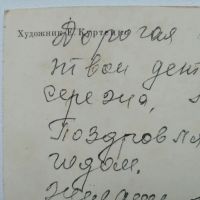 Художник Е. Куртенко
Дорогая
твои дет
Сережа,
Поздравля
годом.
Желаем